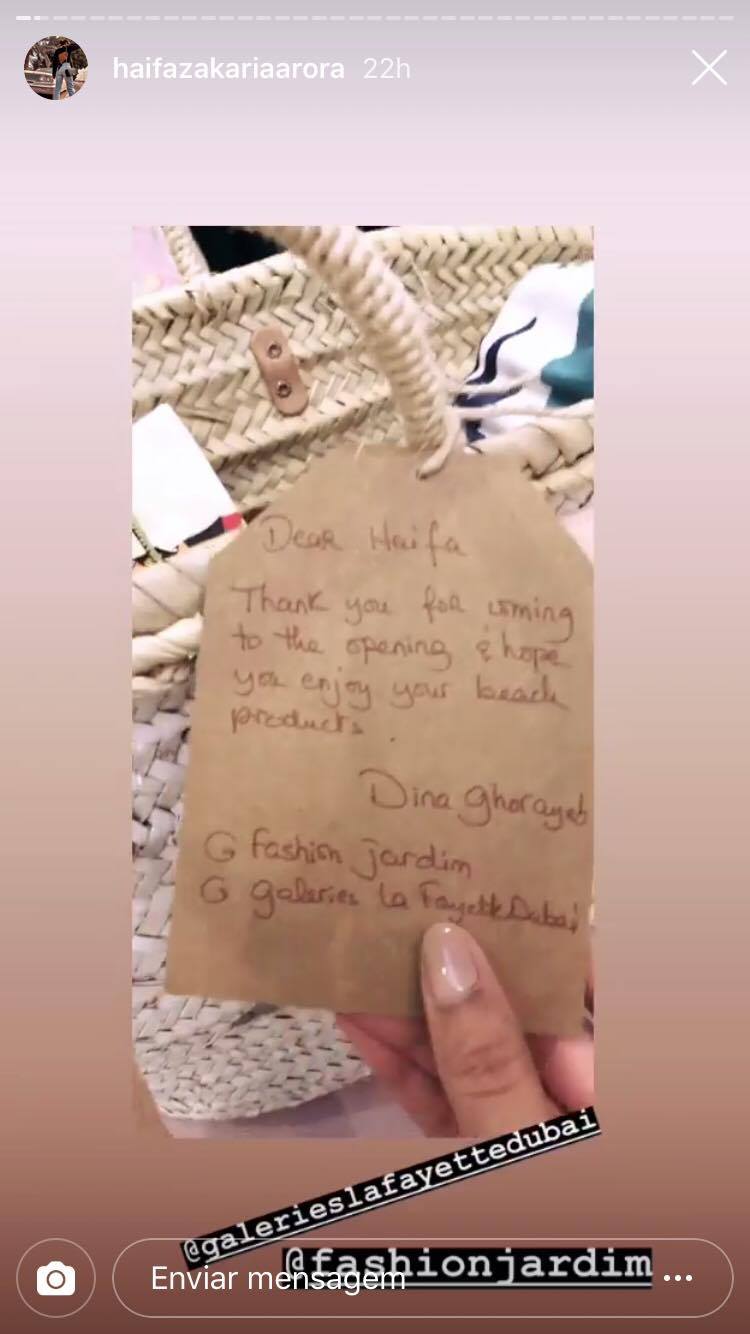 haifazakariaarora 22h
Dear Haifa
Thank you for coming
to the opening & hope
you enjoy your beach
products.
Dina Ghorayeb
@ fashion jardim
@ galeries la Fayette Dubai
@galerieslafayettedubai
@fashionjardim
Enviar mensagem